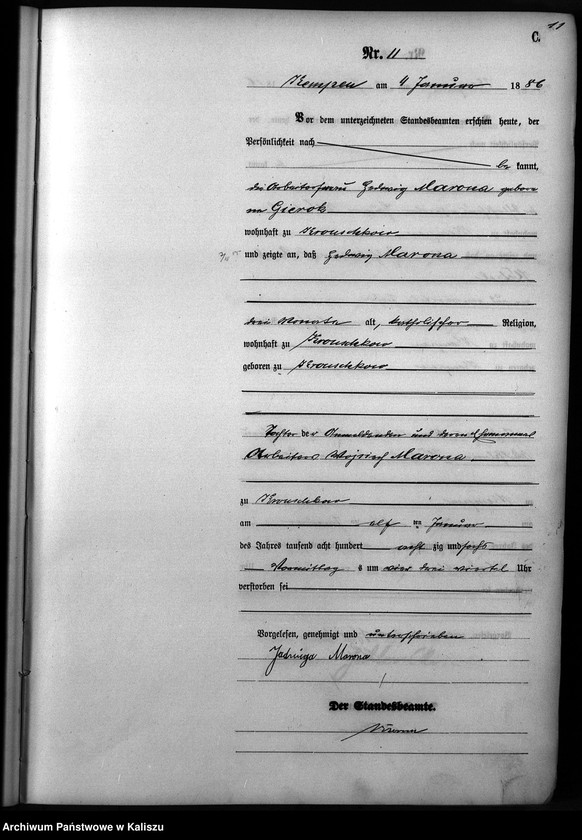 11
C.
Nr. 11
Kempen am 11 Januar 1886
Vor dem unterzeichneten Standesbeamten erschien heute, der
Persönlichkeit nach
be kannt,
die Arbeiterfrau Hedwig Marona gebore
ne Gierok
wohnhaft zu
und zeigte an, daß Hedwig Marona
drei Monate alt, katholischer Religion,
wohnhaft zu
geboren zu
Tochter der Anmeldenden und deren Ehemannes
Arbeiters Marona
zu
am elf ten Januar
des Jahres tausend acht hundert acht zig und sechs
Vormittag s um vier drei viertel Uhr
verstorben sei
Vorgelesen, genehmigt und unterschrieben
Jadwiga Marona
Der Standesbeamte.
Archiwum Państwowe w Kaliszu